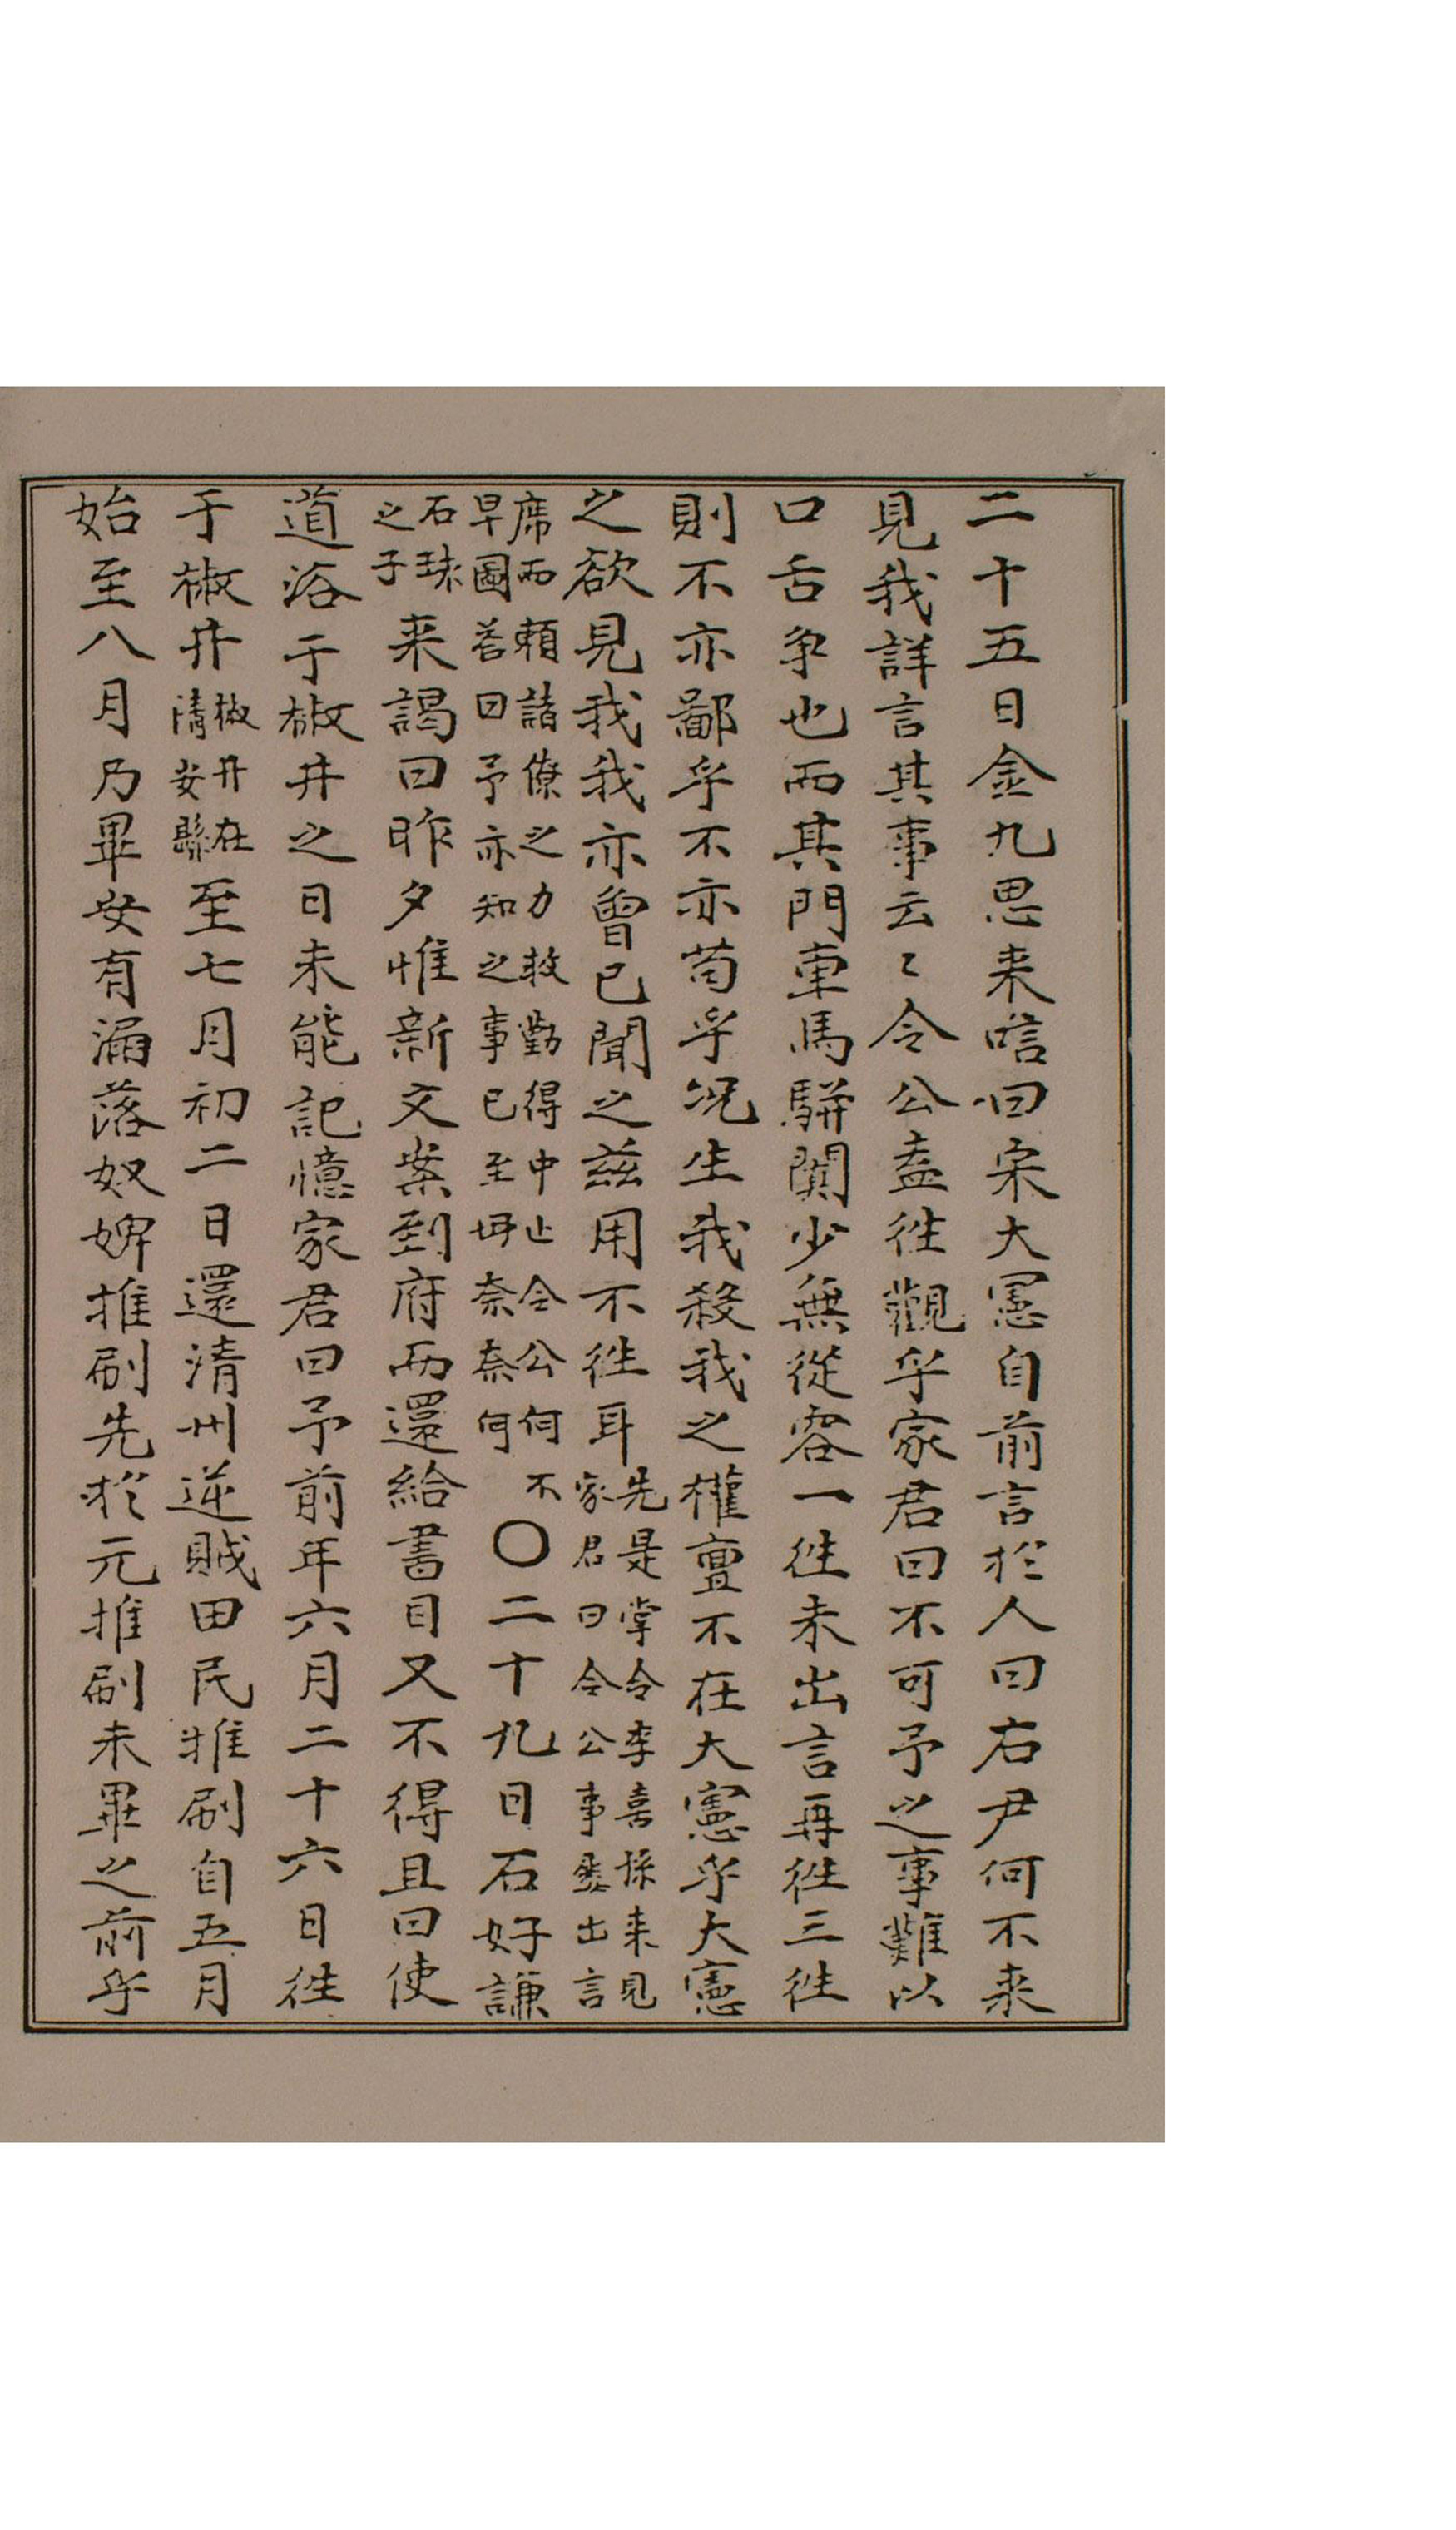 二十五日金九思来唁曰宋大憲自前言於人曰右尹何不来
見我詳言其事云〻令公盍徃觀乎家君曰不可予之事難以
口舌争也而其門車馬騈闐少無從容一徃未出言再徃三徃
則不亦鄙乎不亦苟乎况生我殺我之權亶不在大憲乎大憲
之欲見我我亦曾已聞之兹用不徃耳
先是掌令李喜採来見
家君曰令公事發出言
席而頼諸僚之力救勤得中止令公何不
早圖答曰予亦知之事已至此奈奈何
〇二十九日石好謙
石琜
之子
来謁曰昨夕惟新文案到府而還給書目又不得且曰使
道浴于椒井之日未能記憶家君曰予前年六月二十六日徃
于椒井
椒井在
清安縣
至七月初二日還清州逆賊田民推刷自五月
始至八月乃畢安有漏落奴婢推刷先於元推刷未畢之前乎